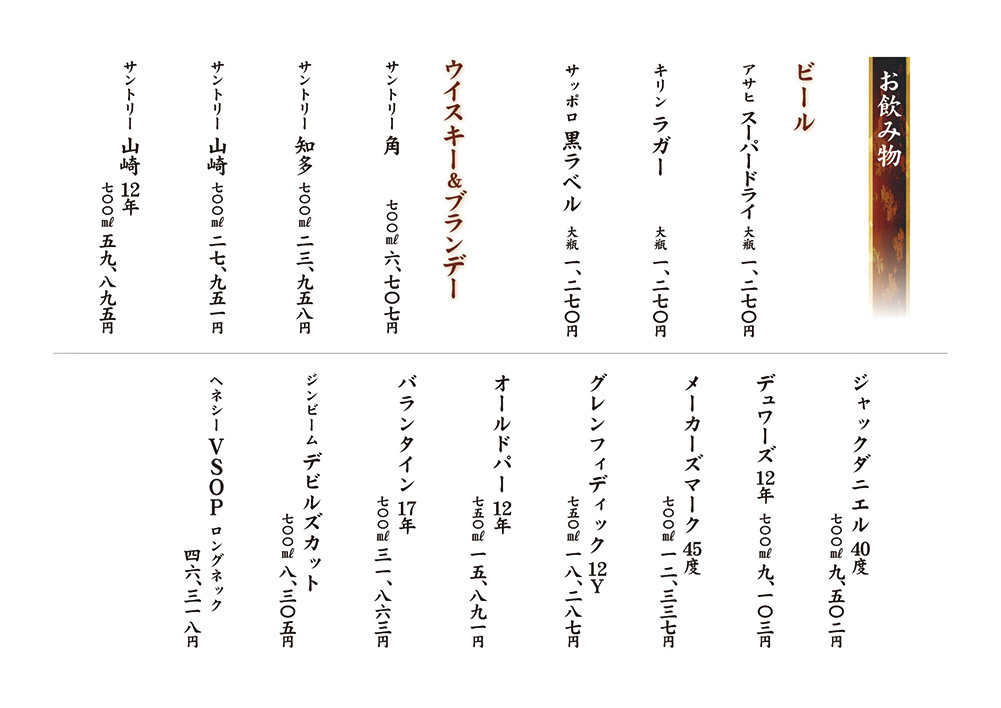 お飲み物
ビール
アサヒ スーパードライ 大瓶 一、二七〇円
キリン ラガー 大瓶 一、二七〇円
サッポロ 黒ラベル 大瓶 一、二七〇円
ウイスキー&ブランデー
サントリー 角 七〇〇㎖ 六、七〇七円
サントリー 知多 七〇〇㎖ 二三、九五八円
サントリー 山崎 七〇〇㎖ 二七、九五一円
サントリー 山崎 12年
七〇〇㎖ 五九、八九五円
ジャックダニエル 40度
七〇〇㎖ 九、五〇二円
デュワーズ 12年 七〇〇㎖ 九、一〇三円
メーカーズマーク 45度
七〇〇㎖ 一二、三三七円
グレンフィディック 12Y
七五〇㎖ 一八、二八七円
オールドパー 12年
七五〇㎖ 一五、八九一円
バランタイン 17年
七〇〇㎖ 三一、八六三円
ジンビーム デビルズカット
七〇〇㎖ 八、三〇五円
ヘネシー VSOP ロングネック
四六、三一八円